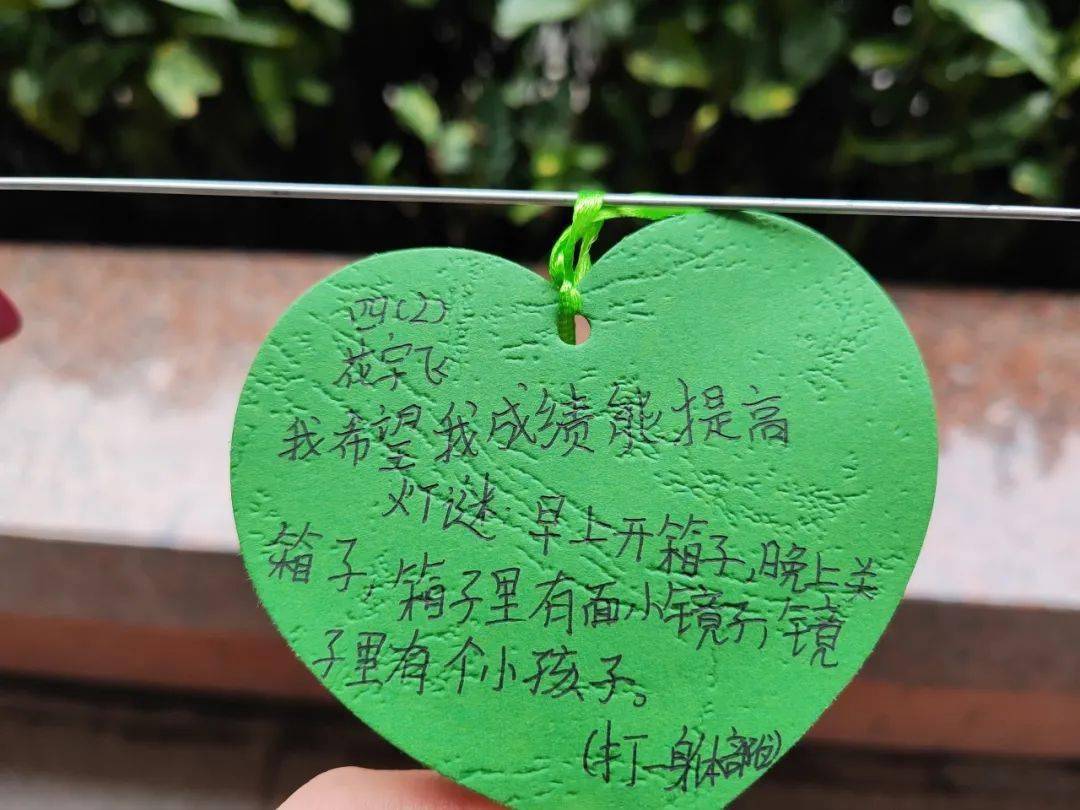 四(2)
花宇飞
我希望我成绩能提高
灯谜：早上开箱子，晚上关
箱子，箱子里有面小镜子，镜
子里有个小孩子。
(打一身体部位)